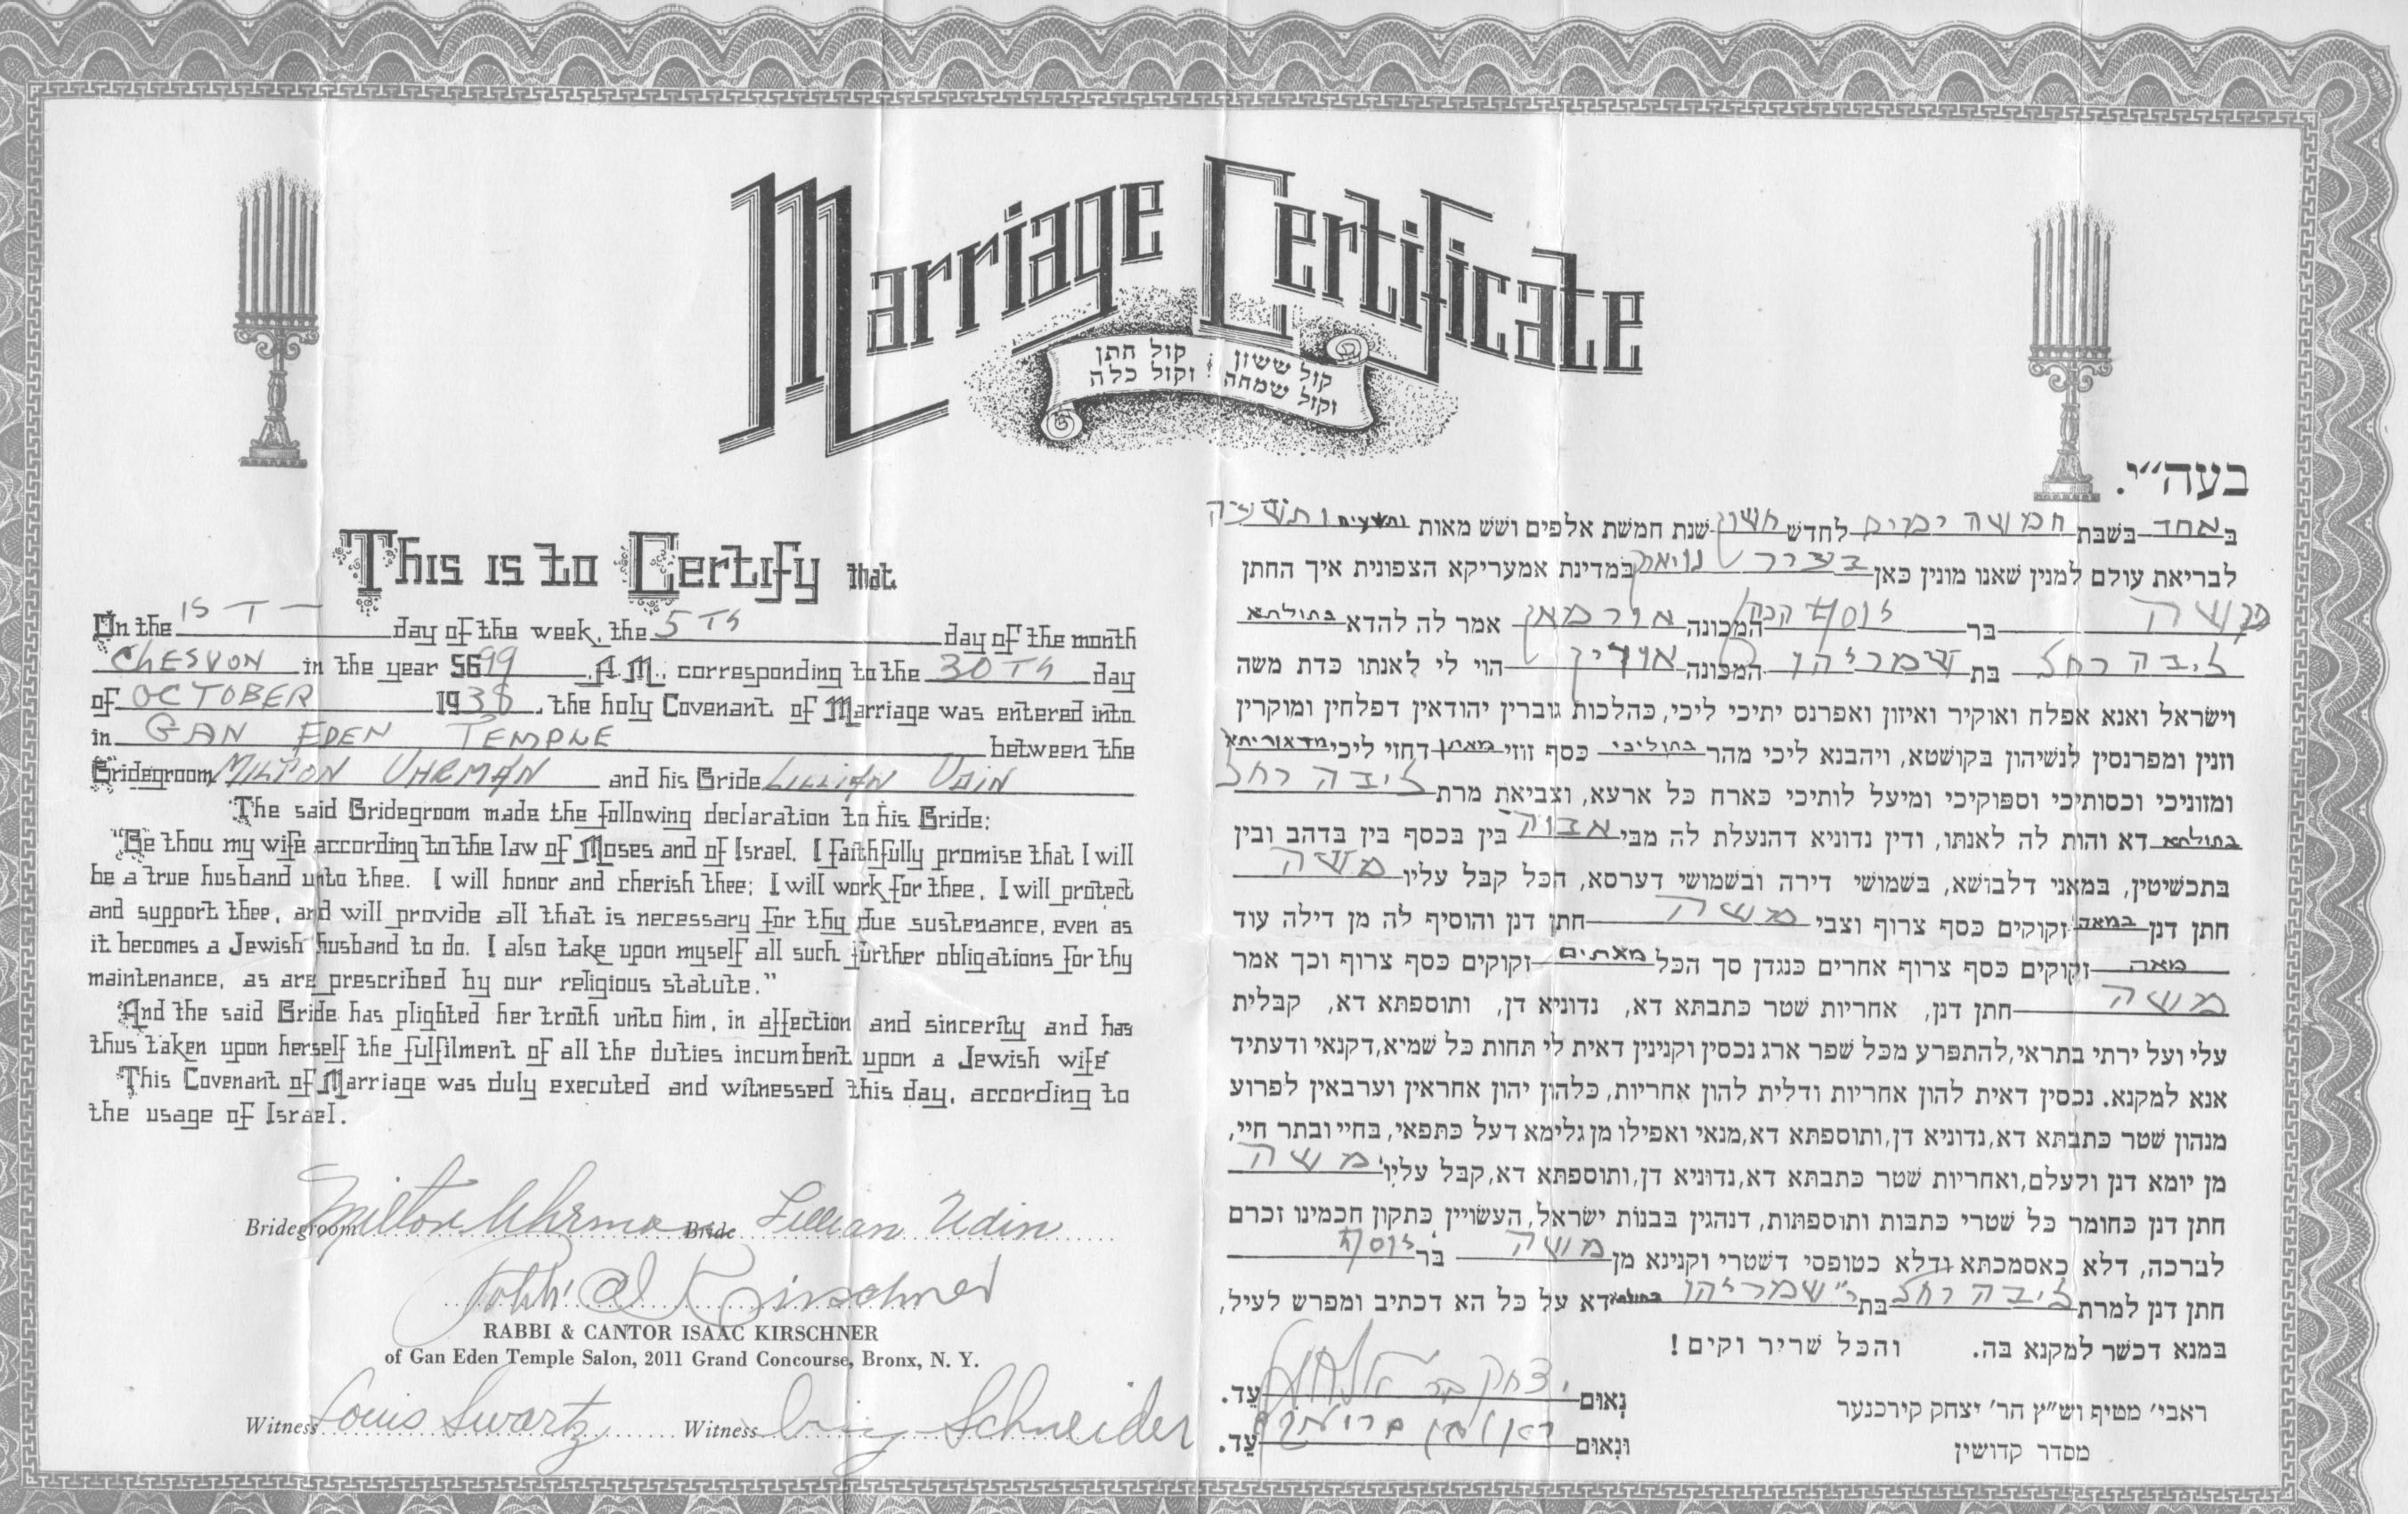 Marriage Certificate
קול ששון וקול שמחה
קול חתן וקול כלה
This is to Certify that
On the 1ST day of the week, the 5TH day of the month
CHESVON in the year 5699 A.M., corresponding to the 30TH day
of OCTOBER 1938, the holy Covenant of Marriage was entered into
in GAN EDEN TEMPLE between the
Bridegroom MILTON UHRMAN and his Bride LILLIAN UDIN
The said Bridegroom made the following declaration to his Bride:
"Be thou my wife according to the law of Moses and of Israel. I faithfully promise that I will
be a true husband unto thee. I will honor and cherish thee; I will work for thee, I will protect
and support thee, and will provide all that is necessary for thy due sustenance, even as
it becomes a Jewish husband to do. I also take upon myself all such further obligations for thy
maintenance, as are prescribed by our religious statute."
And the said Bride has plighted her troth unto him, in affection and sincerity and has
thus taken upon herself the fulfilment of all the duties incumbent upon a Jewish wife
This Covenant of Marriage was duly executed and witnessed this day, according to
the usage of Israel.
Bridegroom Milton Uhrman Bride Lillian Udin
Rabbi Kirschner
RABBI & CANTOR ISAAC KIRSCHNER
of Gan Eden Temple Salon, 2011 Grand Concourse, Bronx, N. Y.
Witness Louis Swartz Witness Schneider
בעה״י.
באחד בשבת חמשה ימים לחדש חשון שנת חמשת אלפים ושש מאות ותשעים
לבריאת עולם למנין שאנו מונין כאן במדינת אמעריקא הצפונית איך החתן
משה בר יוסף המכונה אורמאן אמר לה להדא בתולתא
ליבה רחל בת שמריהו המכונה אודין הוי לי לאנתו כדת משה
וישראל ואנא אפלח ואוקיר ואיזון ואפרנס יתיכי ליכי, כהלכות גוברין יהודאין דפלחין ומוקרין
וזנין ומפרנסין לנשיהון בקושטא, ויהבנא ליכי מהר בתוליכי כסף זוזי מאתן דחזי ליכי מדאוריתא
ומזוניכי וכסותיכי וספוקיכי ומיעל לותיכי כארח כל ארעא, וצביאת מרת ליבה רחל
בתולתא דא והות לה לאנתו, ודין נדוניא דהנעלת לה מבי אבוה בין בכסף בין בדהב ובין
בתכשיטין, במאני דלבושא, בשמושי דירה ובשמושי דערסא, הכל קבל עליו משה
חתן דנן במאה זקוקים כסף צרוף וצבי משה חתן דנן והוסיף לה מן דילה עוד
מאה זקוקים כסף צרוף אחרים כנגדן סך הכל מאתים זקוקים כסף צרוף וכך אמר
משה חתן דנן, אחריות שטר כתבתא דא, נדוניא דן, ותוספתא דא, קבלית
עלי ועל ירתי בתראי, להתפרע מכל שפר ארג נכסין וקנינין דאית לי תחות כל שמיא, דקנאי ודעתיד
אנא למקנא. נכסין דאית להון אחריות ודלית להון אחריות, כלהון יהון אחראין וערבאין לפרוע
מנהון שטר כתבתא דא, נדוניא דן, ותוספתא דא, מנאי ואפילו מן גלימא דעל כתפאי, בחיי ובתר חיי,
מן יומא דנן ולעלם, ואחריות שטר כתבתא דא, נדוניא דן, ותוספתא דא, קבל עליו משה
חתן דנן כחומר כל שטרי כתבות ותוספתות, דנהגין בבנות ישראל, העשויין כתקון חכמינו זכרם
לברכה, דלא כאסמכתא ודלא כטופסי דשטרי וקנינא מן משה בר יוסף
חתן דנן למרת ליבה רחל בת ר׳ שמריהו בתולתא דא על כל הא דכתיב ומפרש לעיל,
במנא דכשר למקנא בה. והכל שריר וקים!
נאום יצחק בר עד.
ונאום עד.
ראבי׳ מטיף וש״ץ הר׳ יצחק קירכנער
מסדר קדושין